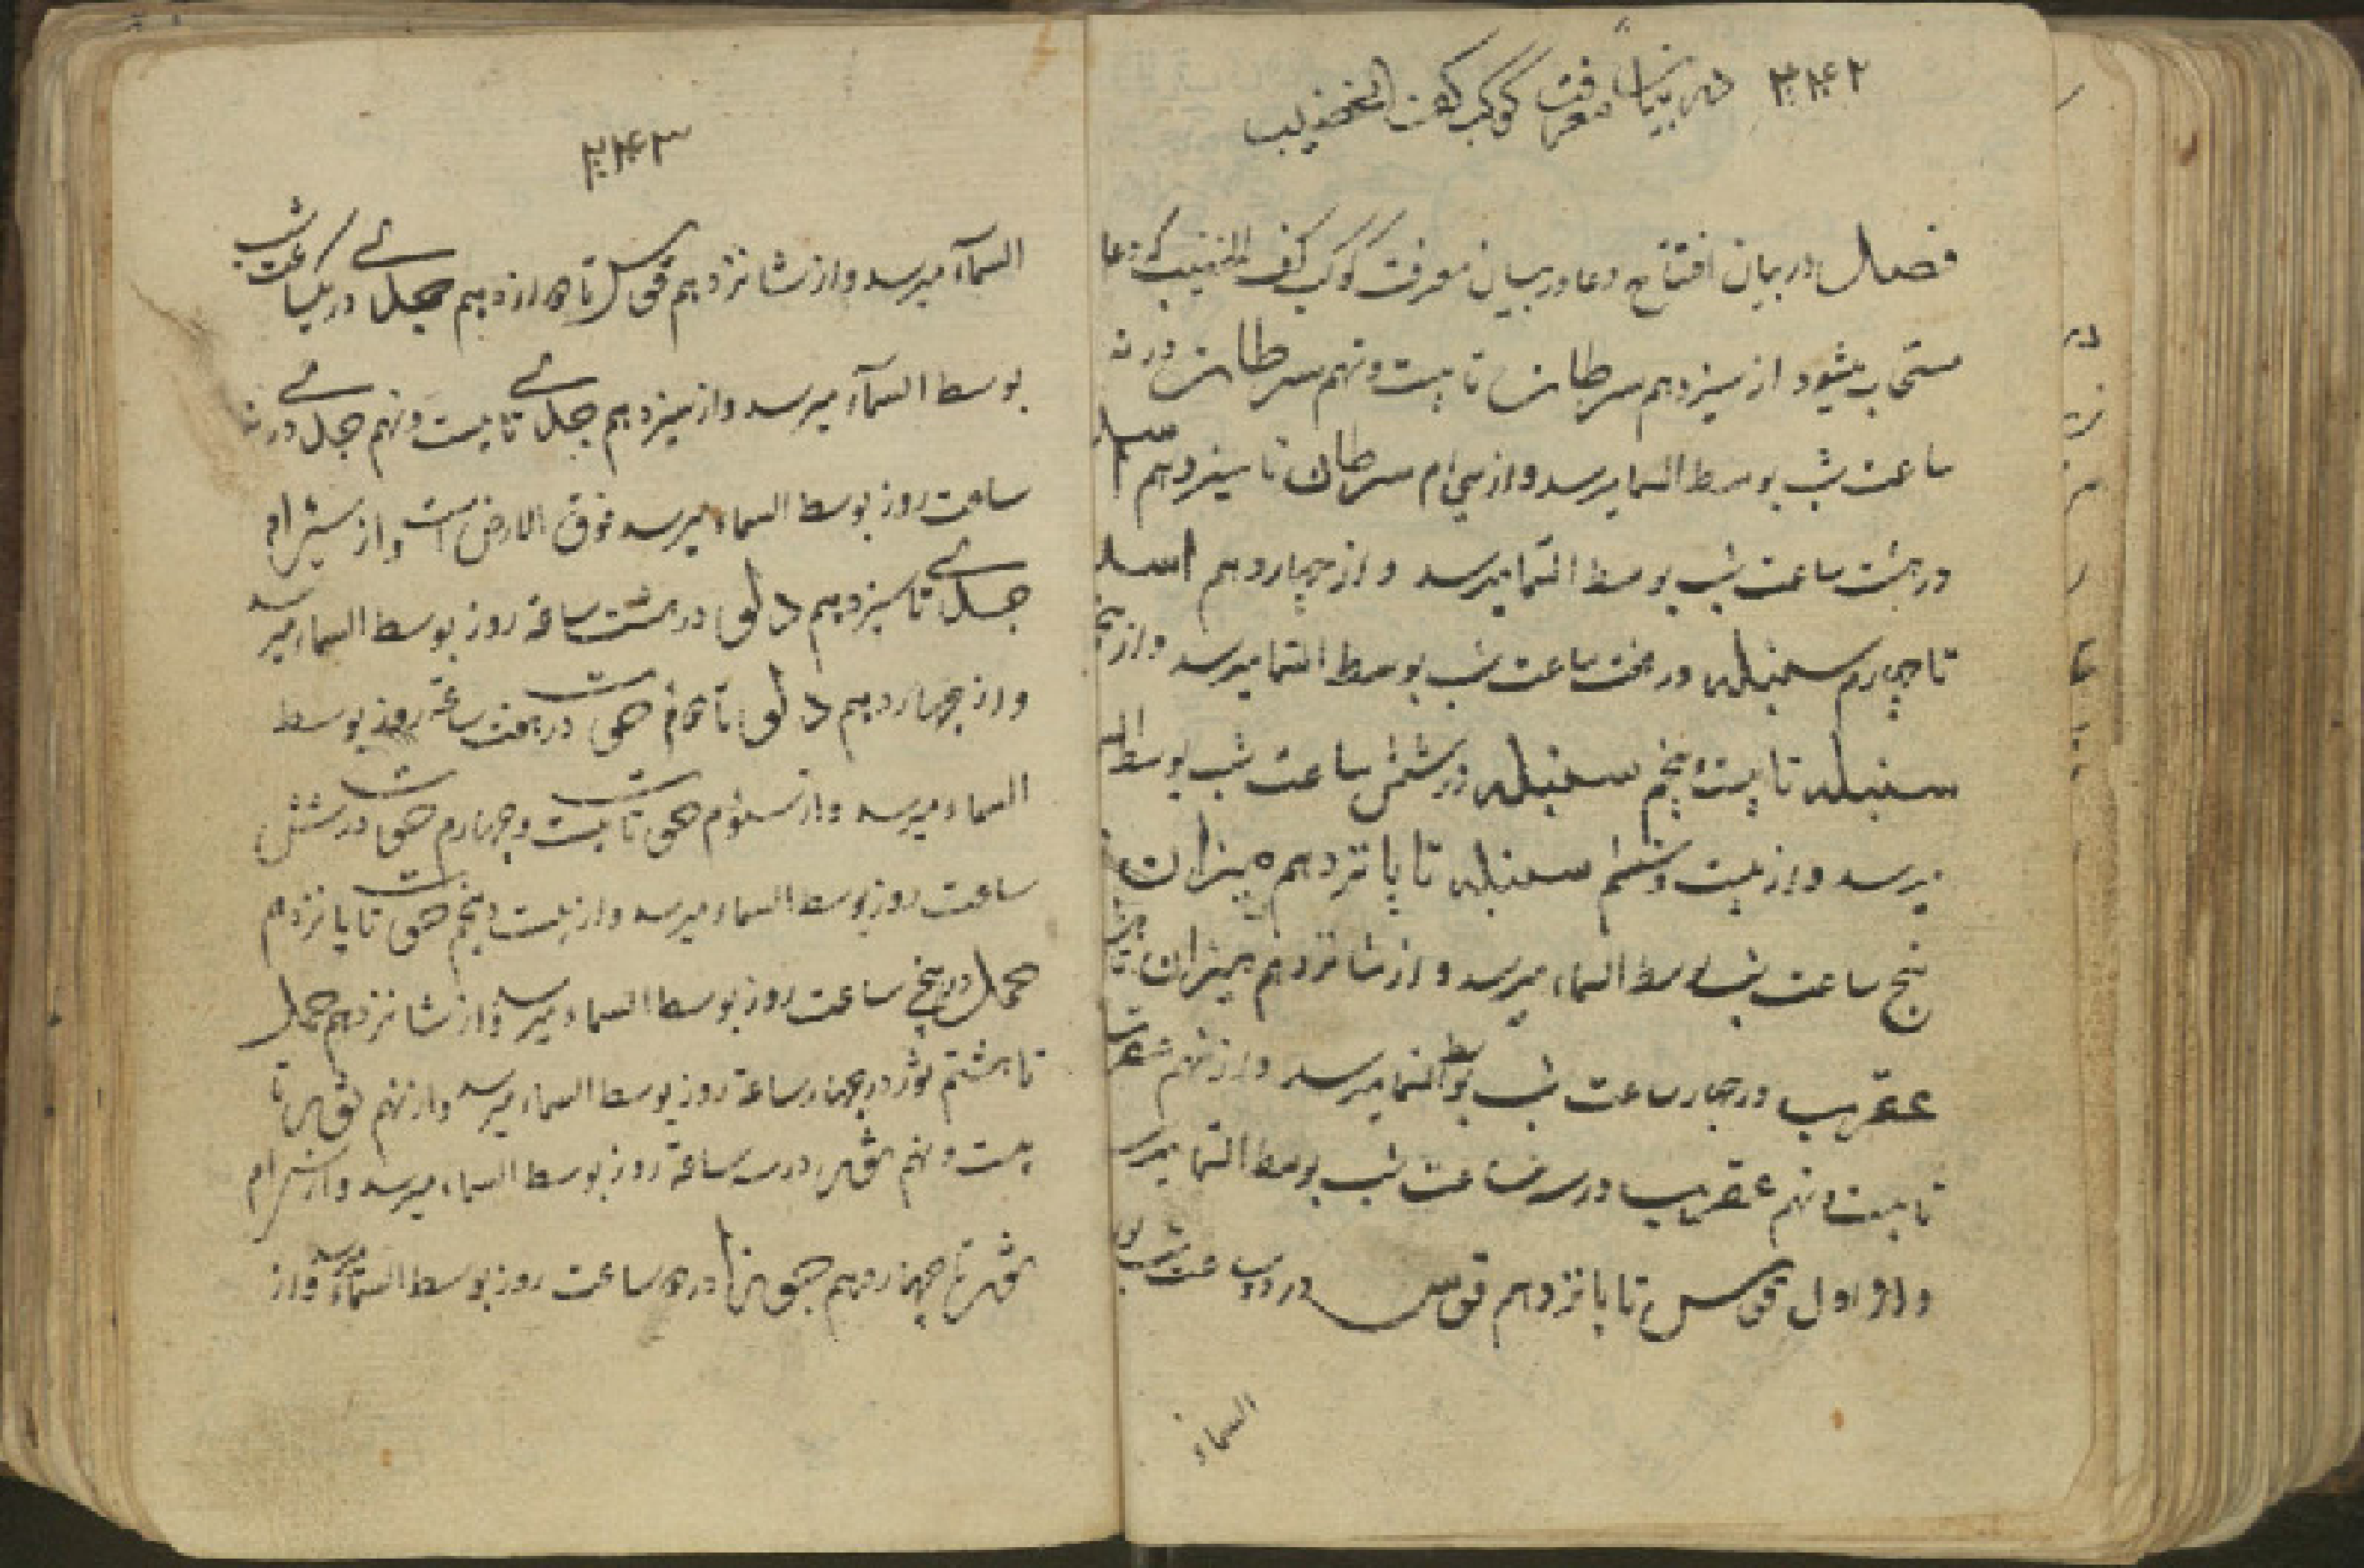 ۲۴۲ در بیان معرفت کوکب کف الخضیب
فصل در بیان افتتاح دعا و در بیان معرفت کوکب کف الخضیب که دعا
مستجاب میشود از سیزدهم سرطان تا بیست و نهم سرطان در نه
ساعت شب بوسط السما میرسد و از سی ام سرطان تا سیزدهم اسد
در هشت ساعت شب بوسط السما میرسد و از چهاردهم اسد
تا چهارم سنبله در هفت ساعت شب بوسط السما میرسد و از پنجم
سنبله تا بیست و پنجم سنبله در شش ساعت شب بوسط السما
میرسد و از بیست و ششم سنبله تا پانزدهم میزان در
پنج ساعت شب بوسط السماء میرسد و از شانزدهم میزان تا
عقرب در چهار ساعت شب بوسط السما میرسد و از نهم عقرب
تا بیست و نهم عقرب در سه ساعت شب بوسط السما میرسد
و از اول قوس تا پانزدهم قوس در دو ساعت شب بوسط
السماء
۲۴۳
السمآء میرسد و از شانزدهم قوس تا دوازدهم جدی در یکساعت شب
بوسط السمآء میرسد و از سیزدهم جدی تا بیست و نهم جدی در نه
ساعت روز بوسط السماء میرسد فوق الارض است و از سیرام
جدی تا سیزدهم دلو در هشت ساعة روز بوسط السماء میرسد
و از چهاردهم دلو تا دوم حوت در هفت ساعة روز بوسط
السماء میرسد و از سوم حوت تا بیست و چهارم حوت در شش
ساعت روز بوسط السماء میرسد و از بیست و پنجم حوت تا پانزدهم
حمل در پنج ساعت روز بوسط السماء میرسد و از شانزدهم حمل
تا هشتم ثور در چهار ساعة روز بوسط السماء میرسد و از نهم ثور تا
بیست و نهم ثور در سه ساعة روز بوسط السماء میرسد و از سیرام
ثور تا چهاردهم جوزا در دو ساعت روز بوسط السمآء میرسد و از